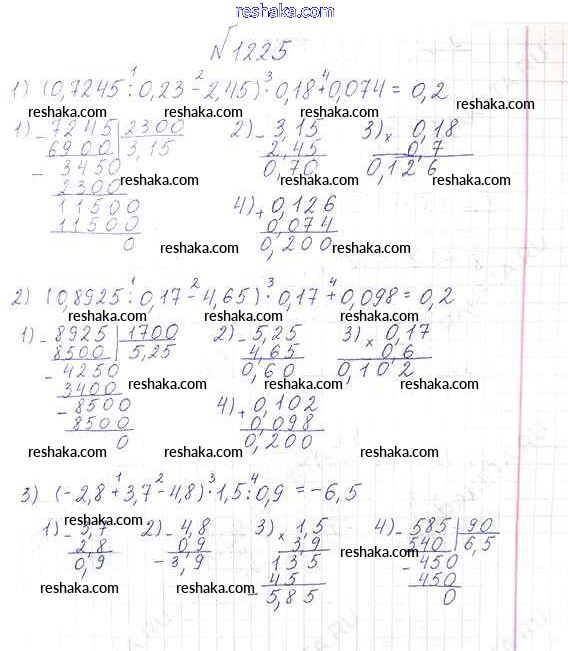 reshaka.com
№1225
1) (0,7245 : 0,23 - 2,45) · 0,18 + 0,074 = 0,2
1 2 3 4
reshaka.com reshaka.com reshaka.com
1) - 7245 | 2300 2) - 3,15 3) x 0,18
6900 | 3,15 2,45 0,7
- 3450 0,70 0,126
2300 reshaka.com reshaka.com reshaka.com
11500 4) + 0,126
11500 0,074
0 reshaka.com 0,200 reshaka.com
2) (0,8925 : 0,17 - 4,65) · 0,17 + 0,098 = 0,2
1 2 3 4
reshaka.com reshaka.com reshaka.com
1) - 8925 | 1700 2) - 5,25 3) x 0,17
8500 | 5,25 4,65 0,6
- 4250 0,60 0,102
3400 reshaka.com reshaka.com reshaka.com
- 8500 4) + 0,102
8500 0,098
0 0,200
reshaka.com reshaka.com reshaka.com
3) (-2,8 + 3,7 - 4,8) · 1,5 : 0,9 = -6,5
1 2 3 4
reshaka.com reshaka.com
1) - 3,7 2) - 4,8 3) x 1,5 4) - 585 | 90
2,8 0,9 3,9 540 | 6,5
0,9 -3,9 135 - 450
reshaka.com
45 450
reshaka.com reshaka.com reshaka.com
5,85 0